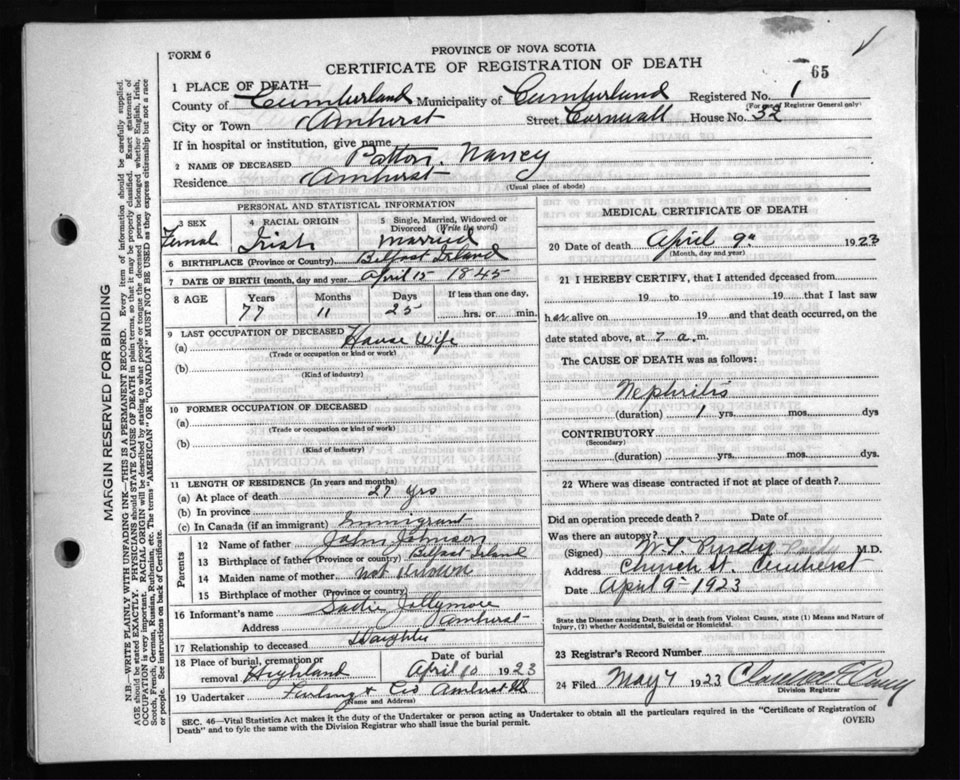 FORM 6
PROVINCE OF NOVA SCOTIA
CERTIFICATE OF REGISTRATION OF DEATH
65
1 PLACE OF DEATH—
County of Cumberland Municipality of Cumberland Registered No. 1
(For use of Registrar General only)
City or Town Amherst Street Cornwall House No. 32
If in hospital or institution, give name
2 NAME OF DECEASED Patton, Nancy
Residence Amherst
(Usual place of abode)
PERSONAL AND STATISTICAL INFORMATION
3 SEX Female
4 RACIAL ORIGIN Irish
5 Single, Married, Widowed or Divorced (Write the word) Married
6 BIRTHPLACE (Province or Country) Belfast Irland
7 DATE OF BIRTH (month, day and year) April 15 1845
8 AGE Years Months Days If less than one day,
77 11 25 hrs. or min.
9 LAST OCCUPATION OF DECEASED
(a) House Wife
(Trade or occupation or kind of work)
(b)
(Kind of industry)
10 FORMER OCCUPATION OF DECEASED
(a)
(Trade or occupation or kind of work)
(b)
(Kind of industry)
11 LENGTH OF RESIDENCE (In years and months)
(a) At place of death 27 yrs
(b) In province
(c) In Canada (if an immigrant) Immigrant
Parents
12 Name of father John Johnson
13 Birthplace of father (Province or country) Belfast Irland
14 Maiden name of mother Not Known
15 Birthplace of mother (Province or country)
16 Informant's name Sadie Jollymore
Address Amherst
17 Relationship to deceased Daughter
18 Place of burial, cremation or removal Highland
Date of burial April 10 1923
19 Undertaker Furlong & Co Amherst NS
(Name and Address)
MEDICAL CERTIFICATE OF DEATH
20 Date of death April 9" 1923
(Month, day and year)
21 I HEREBY CERTIFY, that I attended deceased from
19 to 19 that I last saw
h alive on 19 and that death occurred, on
date stated above, at 7 a.m.
The CAUSE OF DEATH was as follows:
Nephritis
(duration) 1 yrs. mos. dys
CONTRIBUTORY
(Secondary)
(duration) yrs. mos. dys.
22 Where was disease contracted if not at place of death?
Did an operation precede death? Date of
Was there an autopsy?
(Signed) W. T. Purdy M.D.
Address Church St. Amherst
Date April 9 - 1923
State the Disease causing Death, or in death from Violent Causes, state (1) Means and Nature of
Injury, (2) whether Accidental, Suicidal or Homicidal.
23 Registrar's Record Number
24 Filed May 7 1923
Division Registrar
SEC. 46—Vital Statistics Act makes it the duty of the Undertaker or person acting as Undertaker to obtain all the particulars required in the "Certificate of Registration of
Death" and to fyle the same with the Division Registrar who shall issue the burial permit.
(OVER)
MARGIN RESERVED FOR BINDING
N.B.—WRITE PLAINLY WITH UNFADING INK—THIS IS A PERMANENT RECORD. Every item of information should be carefully supplied.
AGE should be stated EXACTLY. PHYSICIANS should STATE CAUSE OF DEATH in plain terms, so that it may be properly classified. Exact statement of
OCCUPATION is very important. RACIAL ORIGIN will be described by stating to what people or tongue the deceased person belonged whether English, Irish,
Scotch, French, German, Russian, Ruthenian, etc. The terms "AMERICAN" OR "CANADIAN" MUST NOT BE USED as they express citizenship but not a race
or people. See instructions on back of Certificate.